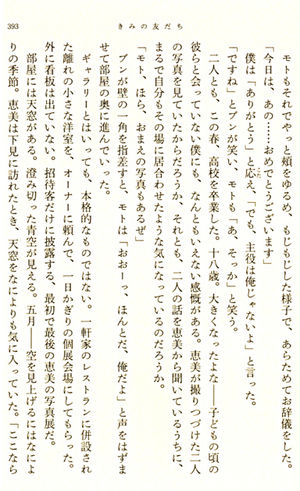 393
きみの友だち
モトもそれでやっと頰をゆるめ、もじもじした様子で、あらためてお辞儀をした。
「今日は、あの……おめでとうございます」
僕は「ありがとう」と応え、「でも、主役は俺じゃないよ」と言った。
「ですね」とブンが笑い、モトも「あ、そっか」と笑う。
二人とも、この春、高校を卒業した。十八歳。大きくなったよな——子どもの頃の
彼らと会っていない僕にも、なんともいえない感慨がある。恵美が撮りつづけた二人
の写真を見ていたからだろうか、それとも、二人の話を恵美から聞いているうちに、
まるで自分もその場に居合わせたような気になっているのだろうか。
「モト、ほら、おまえの写真もあるぜ」
ブンが壁の一角を指差すと、モトは「おおーっ、ほんとだ、俺だよ」と声をはずま
せて部屋の奥に進んでいった。
ギャラリーとはいっても、本格的なものではない。一軒家のレストランに併設され
た離れの小さな洋室を、オーナーに頼んで、一日かぎりの個展会場にしてもらった。
外に看板は出ていない。招待客だけに披露する、最初で最後の恵美の写真展だ。
部屋には天窓がある。澄み切った青空が見える。五月——空を見上げるにはなにより
の季節。恵美は下見に訪れたとき、天窓をなによりも気に入っていた。「ここなら